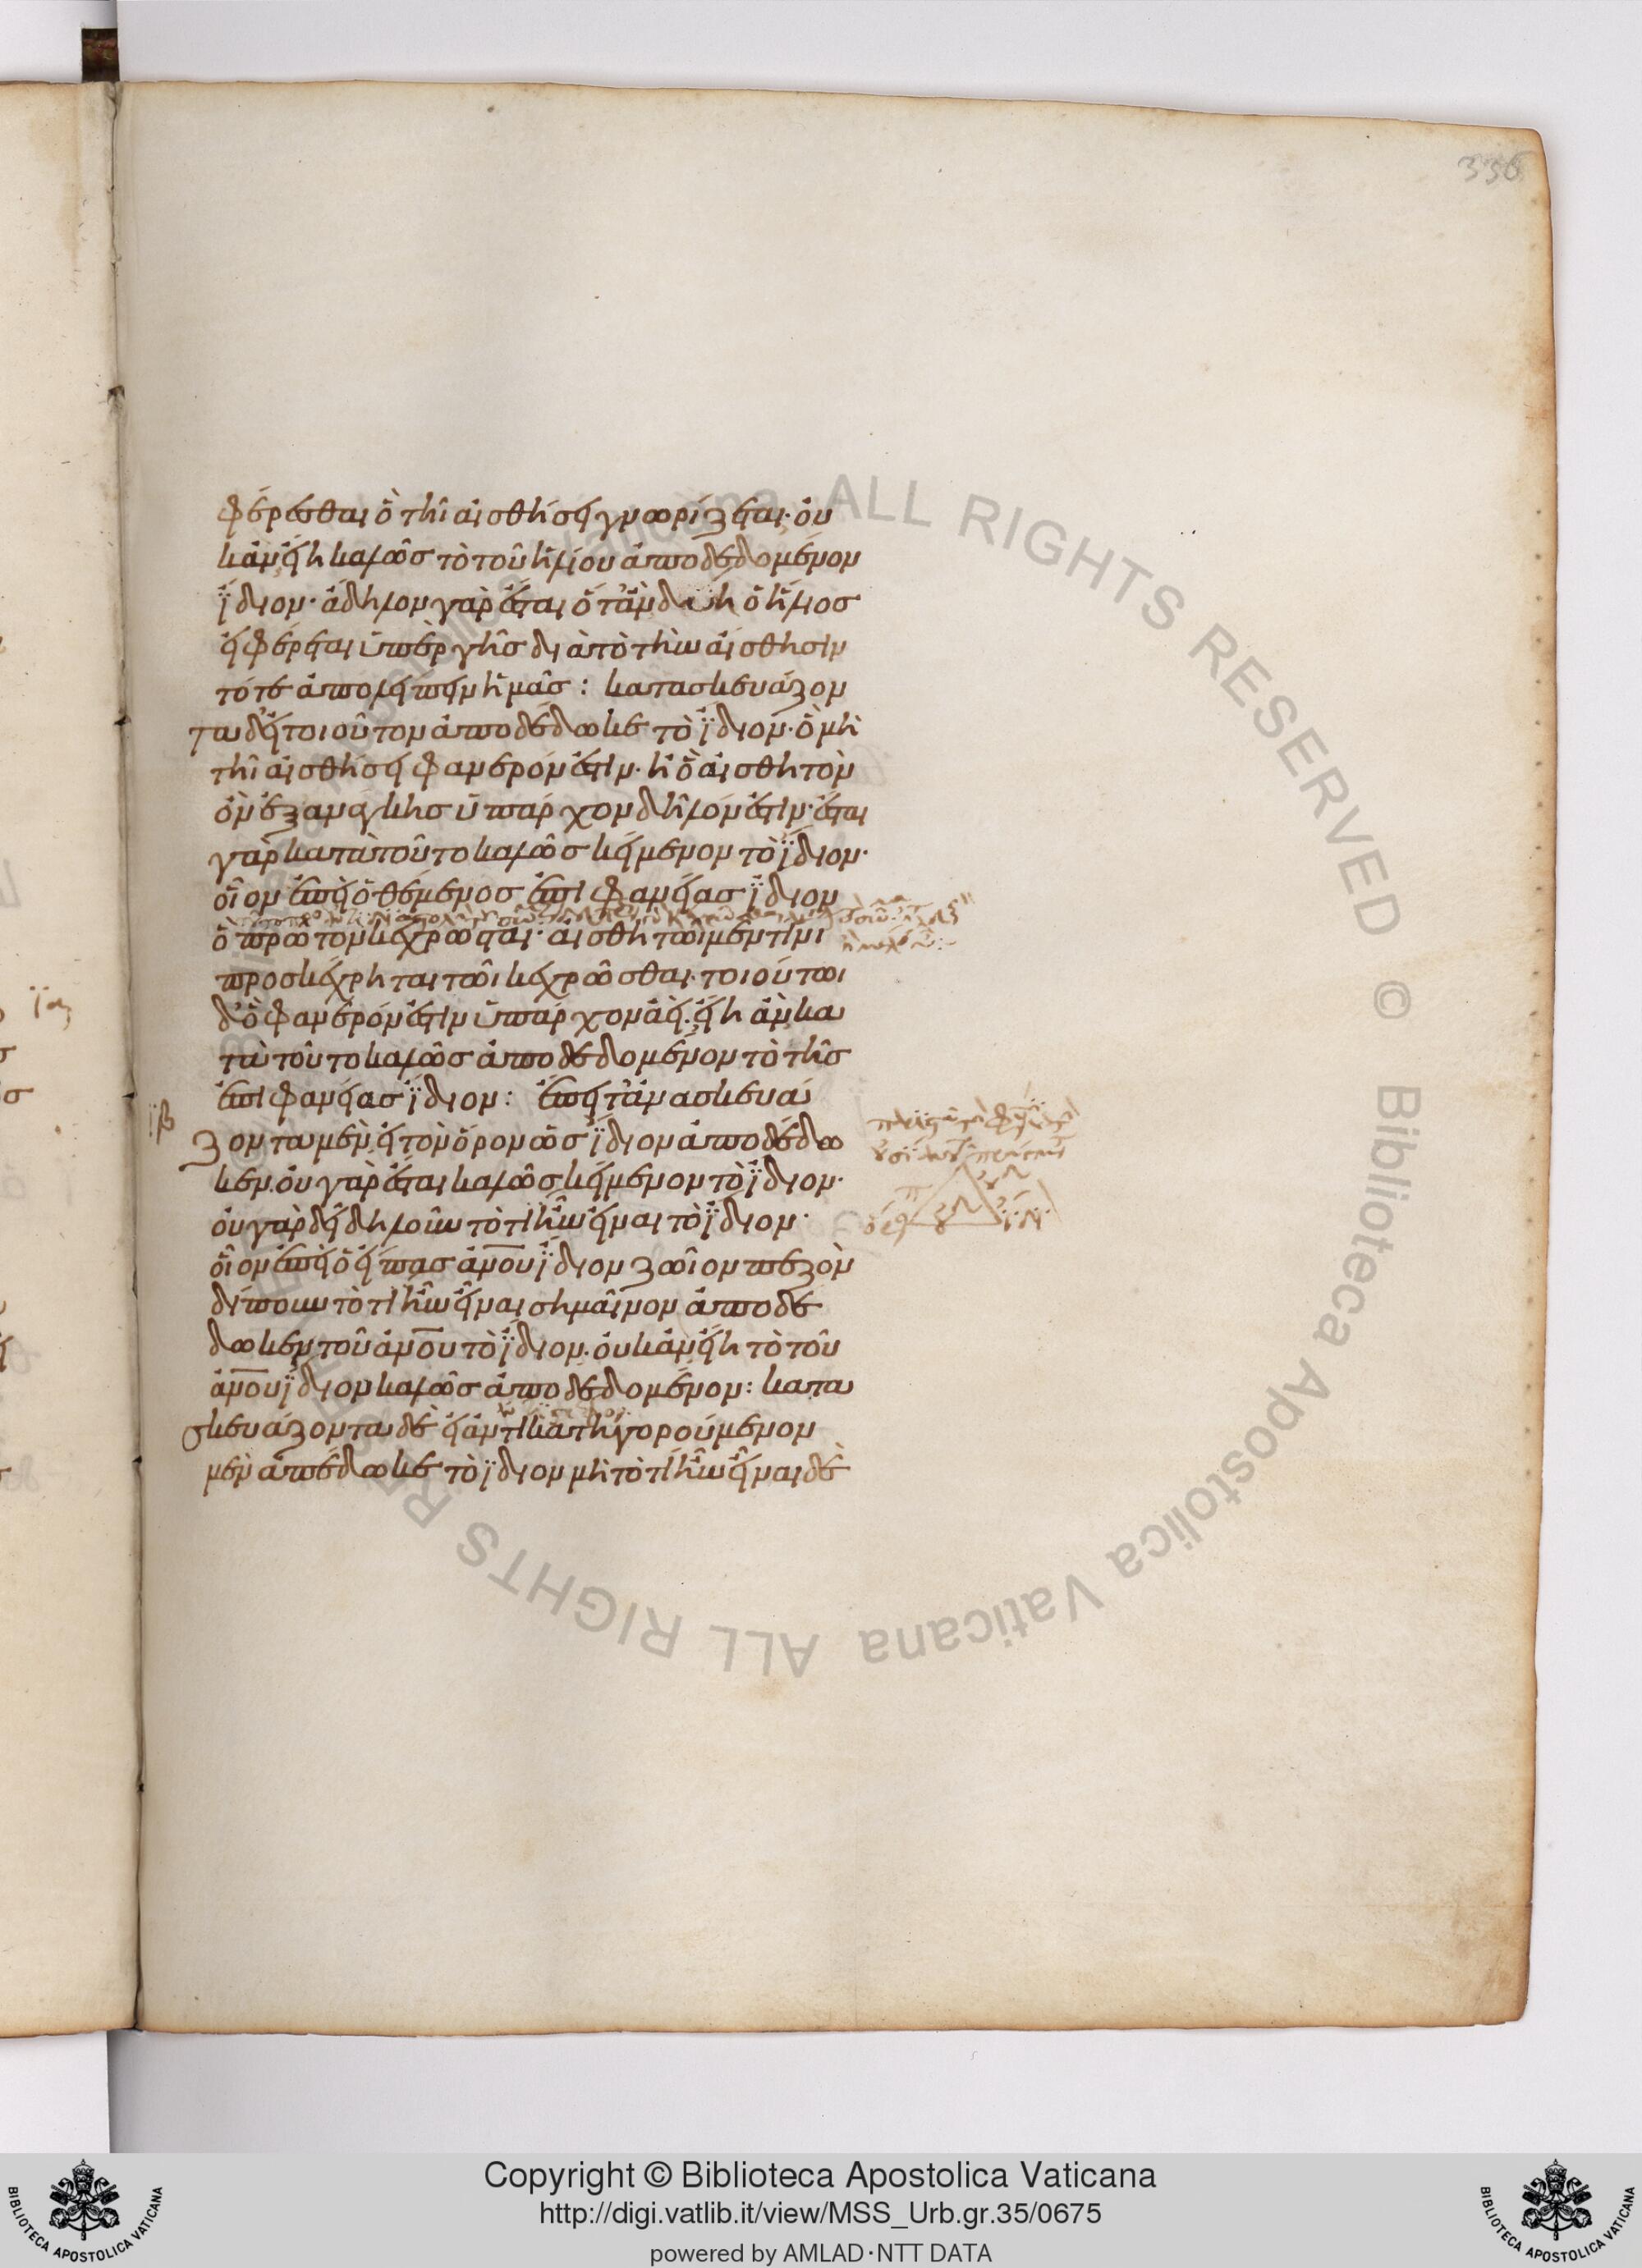 336
φέρεσθαι ὃ τῆι αἰσθήσει γνωρίζεται· οὐ
κἂν εἴη καλῶς τὸ τοῦ ἡλίου ἀποδεδομένον
ἴδιον· ἄδηλον γὰρ ἔσται ὅταν δύηι ὁ ἥλιος
εἰ φέρεται ὑπὲρ γῆς διὰ τὸ τὴν αἴσθησιν
τότε ἀπολείπειν ἡμᾶς : κατασκευάζον
τα δ' εἰ τοιοῦτον ἀποδέδωκε τὸ ἴδιον· ὃ μὴ
τῆι αἰσθήσει φανερόν ἐστιν· ἢ ὃ αἰσθητὸν
ὂν ἐξ ἀνάγκης ὑπάρχον δῆλόν ἐστιν· ἔσται
γὰρ κατὰ τοῦτο καλῶς κείμενον τὸ ἴδιον·
οἷον ἐπεὶ ὁ θέμενος ἐπιφανείας ἴδιον
ὃ πρῶτον κέχρωσται· αἰσθητῶι μέν τινι
προσκέχρηται τῶι κεχρῶσθαι· τοιούτωι
δ' ὃ φανερόν ἐστιν ὑπάρχον ἀεί· εἴη ἂν κα
τὰ τοῦτο καλῶς ἀποδεδομένον τὸ τῆς
ἐπιφανείας ἴδιον : ἔπειτ' ἀνασκευά
ιβ
ζοντα μὲν εἰ τὸν ὅρον ὡς ἴδιον ἀποδέδω
κεν· οὐ γὰρ ἔσται καλῶς κείμενον τὸ ἴδιον·
οὐ γὰρ δεῖ δηλοῦν τὸ τί ἦν εἶναι τὸ ἴδιον·
οἷον ἐπεὶ ὁ εἴπας ἀν̅ο̅υ̅ ἴδιον ζῶιον πεζὸν
δίπουν τὸ τί ἦν εἶναι σημαῖνον ἀποδέ
δωκεν τοῦ ἀν̅ο̅υ̅ τὸ ἴδιον· οὐκ ἂν εἴη τὸ τοῦ
ἀν̅ο̅υ̅ ἴδιον καλῶς ἀποδεδομένον : κατα
σκευάζοντα δὲ εἰ ἀντικατηγορούμενον
μὲν ἀπέδωκε τὸ ἴδιον μὴ τὸ τί ἦν εἶναι δὲ
Copyright © Biblioteca Apostolica Vaticana
http://digi.vatlib.it/view/MSS_Urb.gr.35/0675
powered by AMLAD·NTT DATA